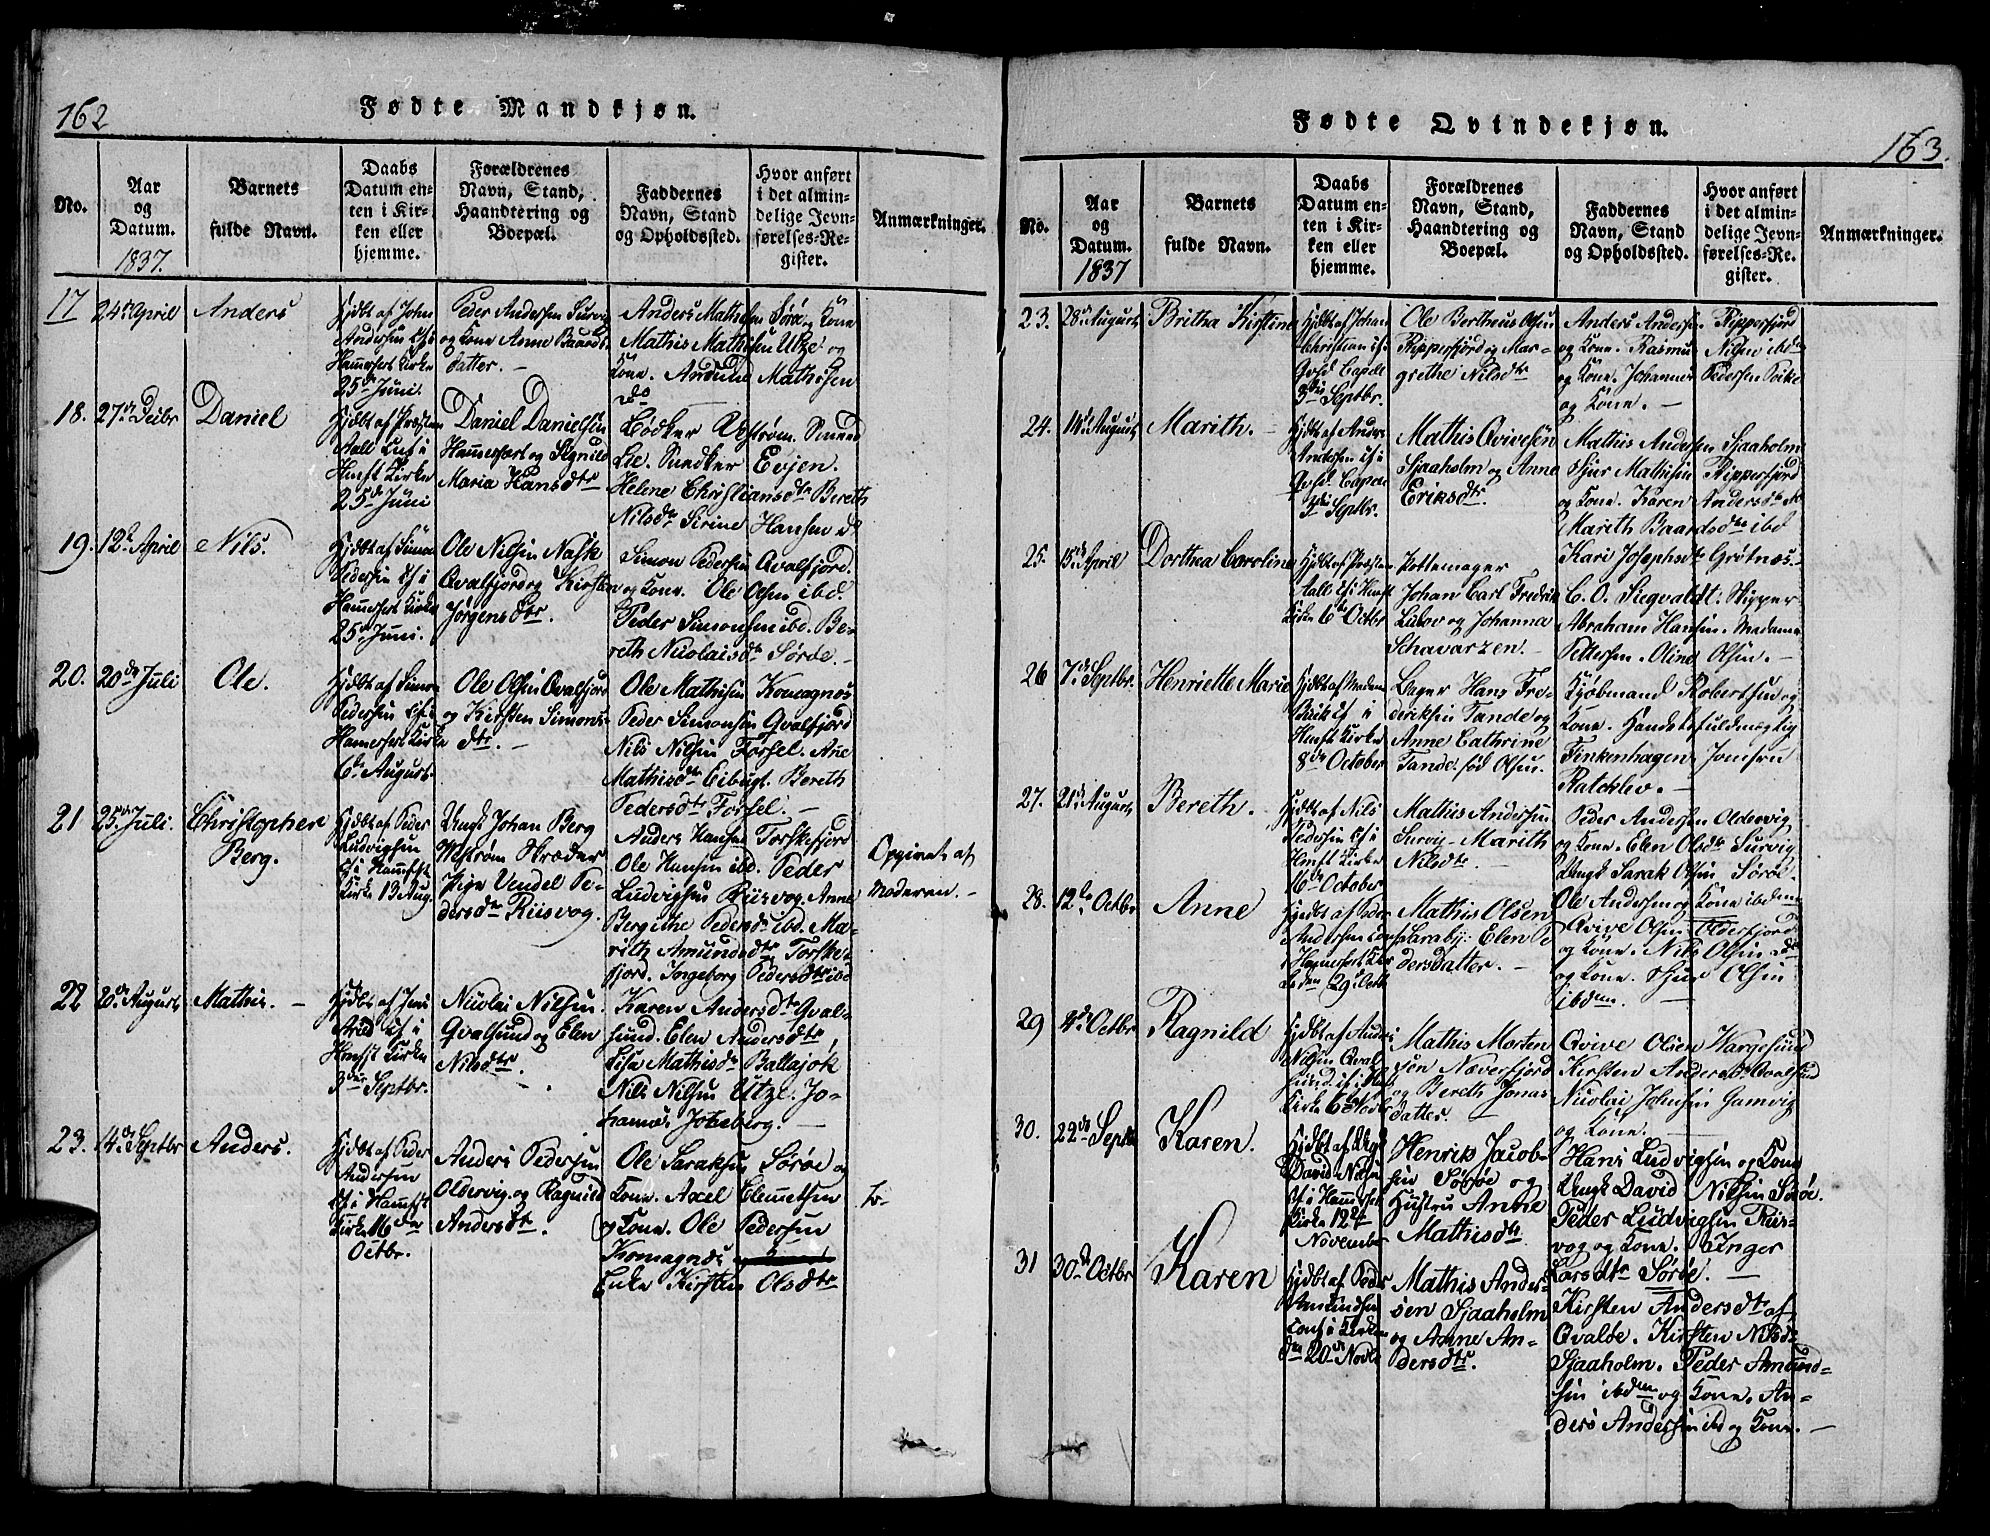 162
Fødte Mandkjøn.
No.
Aar
og
Datum.
1837.
Barnets
fulde Navn.
Daabs
Datum en-
ten i Kir-
ken eller
hjemme.
Forældrenes
Navn, Stand,
Haandtering og
Boepæl.
Faddernes
Navn, Stand
og Opholdssted.
Hvor anført
i det almin-
delige Jevn-
førelses-Re-
gister.
Anmærkninger.
17
24de April
Anders
Hjdbt af John
Andersen Cf: i
Hamerfest Kirke
25de Juni.
Peder Andersen Survig
og Kone Anne Baards-
datter. -
Anders Mathisen Sørø og Kone
Mathis Mathisen Utze og
Kone. Amund Mathisen
18.
27de
Daniel
Hjdbt af Præsten
Aall Cuf i
Hmft Kirke
25de Juni
Daniel Danielsen
Hammerfest og Signild
Maria Hansdtr
Bødker
Lie. Snedker Evjen.
Helene Christiansdtr Bereth
Nilsdtr Sirine Hansen do
19.
12te April
Nils.
Hjdbt af Simon
Pedersen Cf i
Hamerfest Kirke
25de Juni.
Ole Nilsen Næsk
Qvalfjord og Kirsten
Jørgensdtr.
Simon Pedersen Qvalfjord.
og Kone. Ole Olsen ibd.
Peder Simonsen ibd. Be-
reth Nicolaisdtr Sørøe. -
20.
20de Juli
Ole.
Hjdbt af Simon
Pedersen Cf: i
Hamerfest Kirke
6te August.
Ole Olsen Qvalfjord
og Kirsten Simons-
dtr. -
Ole Mathisen Komagnæs
Peder Simonsen Qvalfjord
Nils Nilsen Forsøl. Ane
Mathisdtr Eibugt. Bereth
Pedersdtr Forsøl. -
21
25de Juli.
Christopher
Berg.
Hjdbt af Peder
Ludvigsen
Cf i Hammfst
Kirke 13 Aug.
Ungk Johan Berg
Skræder
Pige Vendel Pe-
dersdtr Riisvog.
Anders Hansen Torskefjord
Ole Hansen ibd. Peder
Ludvigsen Riisvog. Anne
Bergithe Pedersdtr ibd. Ma-
rith Amundsdtr Torske-
fjord. Ingeborg Pedersdtr ibd
Opgivet af
Moderen. -
22
20de August
Mathis. -
Hjdbt af Jens
Cf i
Hmfst Kirke
3die Septbr.
Nicolai Nilsen
Qvalsund og Elen
Nilsdtr.
Karen Andersdtr Qval-
sund. Elen Andersdtr
Lisa Mathisdtr Ballajok
Nils Nilsen Utze. Jo-
hannes Jokeberg. -
23.
14de Septbr
Anders.
Hjdbt af Peder
Andersen
Cf i Hammfst
Kirke 16de
Octbr.
Anders Pedersen
Oldervig og Ragnild
Andersdtr.
Ole Saraksen Sørøe og
Kone. Axel Clemetsen
og Kone. Ole Pedersen
Komagnæs
Enke Kirsten Olsdtr
163.
Fødte Qvindekjøn.
No.
Aar
og
Datum.
1837
Barnets
fulde Navn.
Daabs
Datum en-
ten i Kir-
ken eller
hjemme.
Forældrenes
Navn, Stand,
Haandtering og
Boepæl.
Faddernes
Navn, Stand
og Opholdssted.
Hvor anført
i det almin-
delige Jevn-
førelses-Re-
gister.
Anmærkninger.
23.
28de August
Britha Kirstine
Hjdbt af Johan
Christian Cf:
Qvsd Capele
3die Septbr.
Ole Bertheus Olsen
Ripperfjord og Mar-
grethe Nilsdtr
Anders Andersen Ripperfjord
og Kone. Rasmus Nilsen ibdm
og Kone. Johannes Pedersen
og Kone. -
24.
14de August
Marith. -
Hjdbt af Anders
Andersen Cf i
Qvsd Capell
3die Septbr.
Mathis Qvivesen
Sjaaholm og Anne
Eriksdtr.
Mathis Andersen Sjaaholm
Sjur Mathisen Ripperfjord
og Kone. Karen Andersdtr
Marith Baardsdtr ibd
25.
15de April
Dorthea Caroline
Hjdbt af Præsten
Aall Cf: Hmft
Kirke 6te Octbr
Pottemager
Johan Carl Fredrik
Lubov og Johanna
Schavarzen. -
Kari Josephsdtr Grøtnæs. -
C. O. Siegvaldt. Skipper
Abraham Hansen. Madame
Pettersen. Oline Olsen. -
26
7de Septbr.
Henriette Marie
Hjdbt af Madam
Buck Cf i
Hmft Kirke
8de October
Bager Hans Fre-
deriksen Tande og
Anne Cathrine
Tande. fød Olsen.
Kjøbmand Robertsen og
Kone. Handelsfuldmægtig
Finkenhagen. Jomfru
Ratchlev. -
27.
21de August
Bereth.
Hjdbt af Nils
Pedersen Cf i
Hmft Kirke
16de October
Mathis Andersen
Survig - Marith
Nilsdtr.
Peder Andersen Oldervig
og Kone. Elen Olsdtr Survig
Ungk Sarak Olsen Sørøe.
28.
12te Octbr
Anne
Hjdbt af Peder
Andersen Conf
i Hamerfest Kir-
ke den 29 Octb
Mathis Olsen
Saraby: Elen Pe-
dersdatter. -
Ole Andersen og Kone ibdem
Qvive Olsen Pedersfjord
og Kone. Nils Olsen do
og Kone. Sjur Olsen
ibdem. -
29
4de Octbr
Ragnild
Hjdbt af Anders
Nilsen Qval-
sund Cf i Hmf
Kirke 6 Novbr
Mathis Morten-
sen Næverfjord
og Bereth Jonas
datter. -
Qvive Olsen Vargesund
Kirsten Andersdtr Qvalsund
Nicolai Johnsen Gamvig
og Kone. -
30.
22de Septb
Karen.
Hjdbt af Ungk
David Nilsen
Cf i Hamerfest
Kirke 12te
November
Henrik Jacob-
sen Sørøe og
Hustru Anne
Mathisdtr
Hans Ludvigsen og Kone
Ungk David Nilsen Sørøe.
Peder Ludvigsen Riis-
vog og Kone. Inger
Larsdtr Sørøe. -
31
30de Octbr
Karen
Hjdbt af Peder
Amundsen
Conf i Kirken
den 20de Novbr
Mathis Ander-
sen Sjaaholm
og Anne An-
dersdtr.
Kirsten Andersdtr af
Qvaløe. Kirsten Nilsdtr
Sjaaholm. Peder Amund-
sen ibdem og Kone. An-
ders Andersen ibd og Kone. -